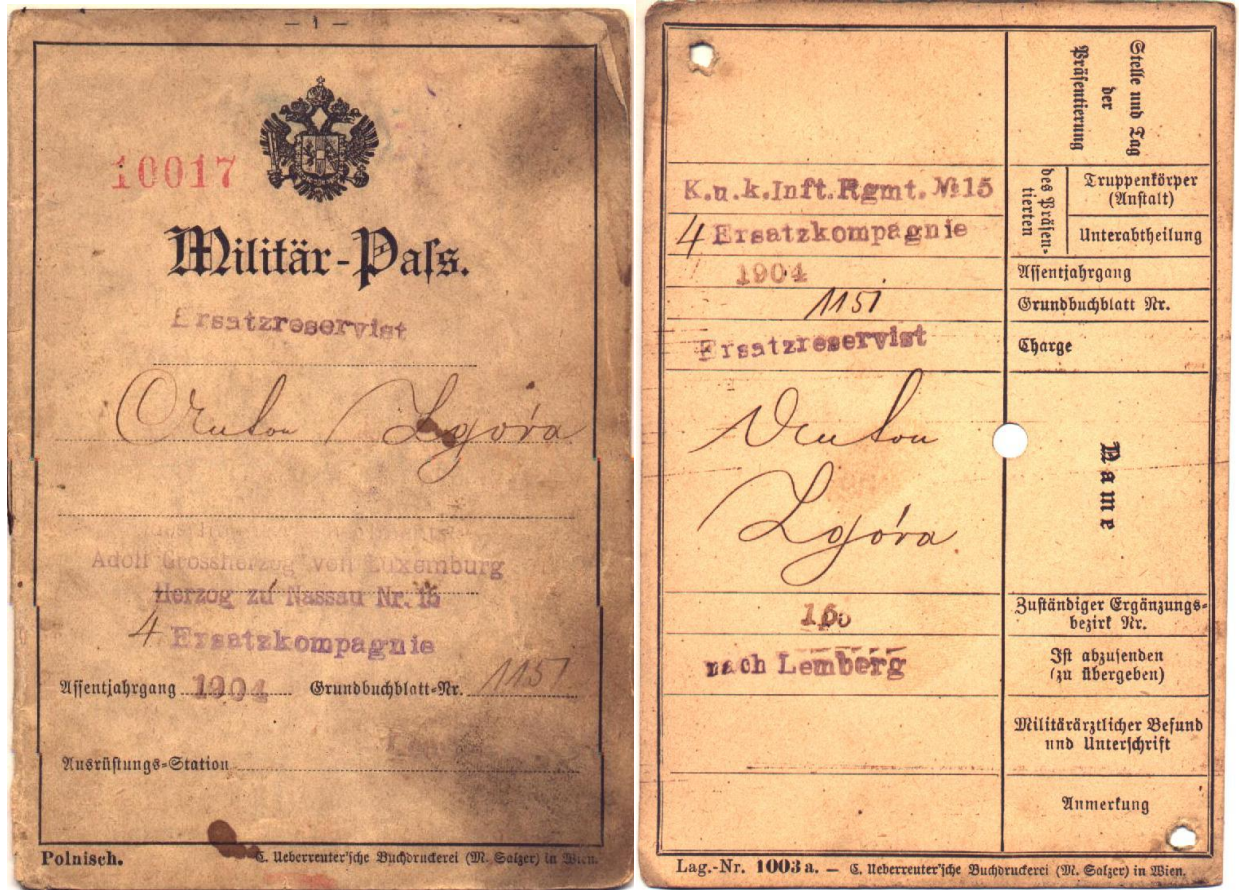 — 1 —
10017
Militär-Paſs.
Ersatzreservist
Anton Zgóra
Adolf Grossherzog von Luxemburg
Herzog zu Nassau Nr. 15
4 Ersatzkompagnie
Aſſentjahrgang 1904 Grundbuchblatt-Nr. 1151
Ausrüſtungs-Station
Polnisch.
C. Ueberreuter'ſche Buchdruckerei (M. Salzer) in Wien.
Stelle und Tag
der
Präſentierung
K.u.k.Inft.Rgmt. № 15
des Präſen-
tierten
Truppenkörper
(Anſtalt)
4 Ersatzkompagnie
Unterabtheilung
1904
Aſſentjahrgang
1151
Grundbuchblatt Nr.
Ersatzreservist
Charge
Anton
Zgóra
Name
Zuſtändiger Ergänzungs-
bezirk Nr.
nach Lemberg
Iſt abzuſenden
(zu übergeben)
Militärärztlicher Befund
und Unterſchrift
Anmerkung
Lag.-Nr. 1003 a. — C. Ueberreuter'ſche Buchdruckerei (M. Salzer) in Wien.